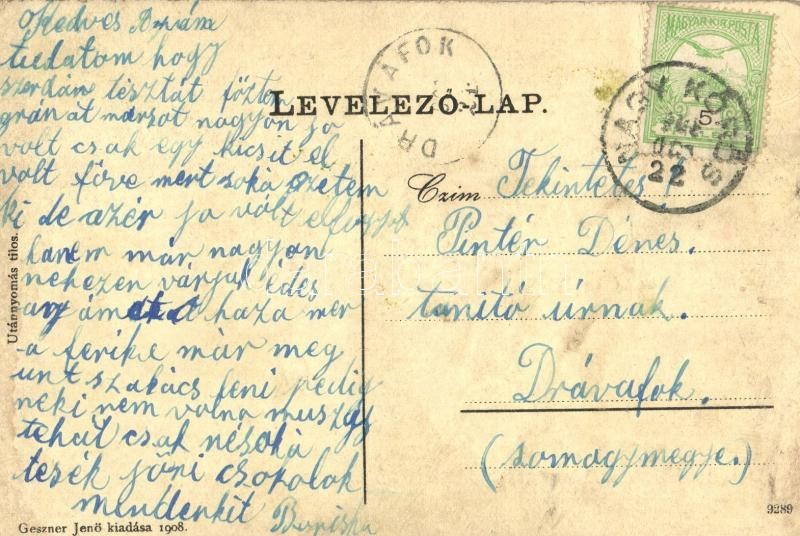 Kedves
tudatom hogy
szerdán tésztát főztem
gránát marsot nagyon jo
volt csak egy kicsit el
volt főve mert soká szetem
ki de azér jo volt
hanem már nagyon
nehezen várjuk édes
haza mer
a ferike már meg
unt szakács leni pedig
neki nem volna muszaj
tehát csak ne soká
tesék jőni csokolok
mindenkit
Utánnyomás tilos.
Geszner Jenő kiadása 1908.
LEVELEZŐ-LAP.
DRÁVAFOK
MAGYAR KIR. POSTA
NAGY KŐRÖS
22
Czim Tekintetes
Pintér Dénes.
tanitó úrnak.
Drávafok.
(somogymegye.)
9289